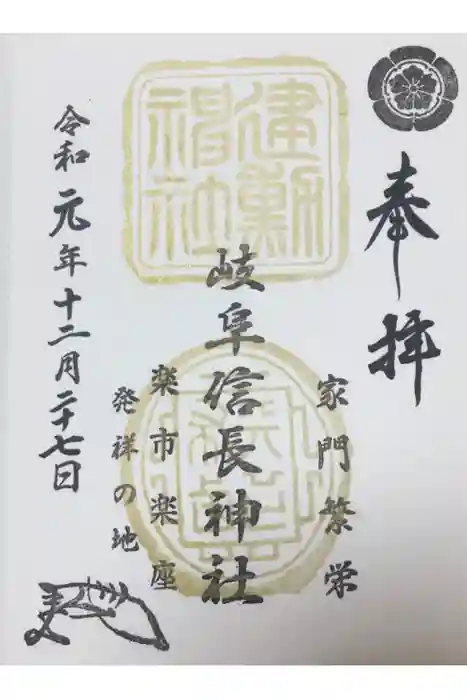 奉拝
家門繁栄
建勲神社
岐阜信長神社
楽市楽座
発祥の地
令和元年十二月二十七日